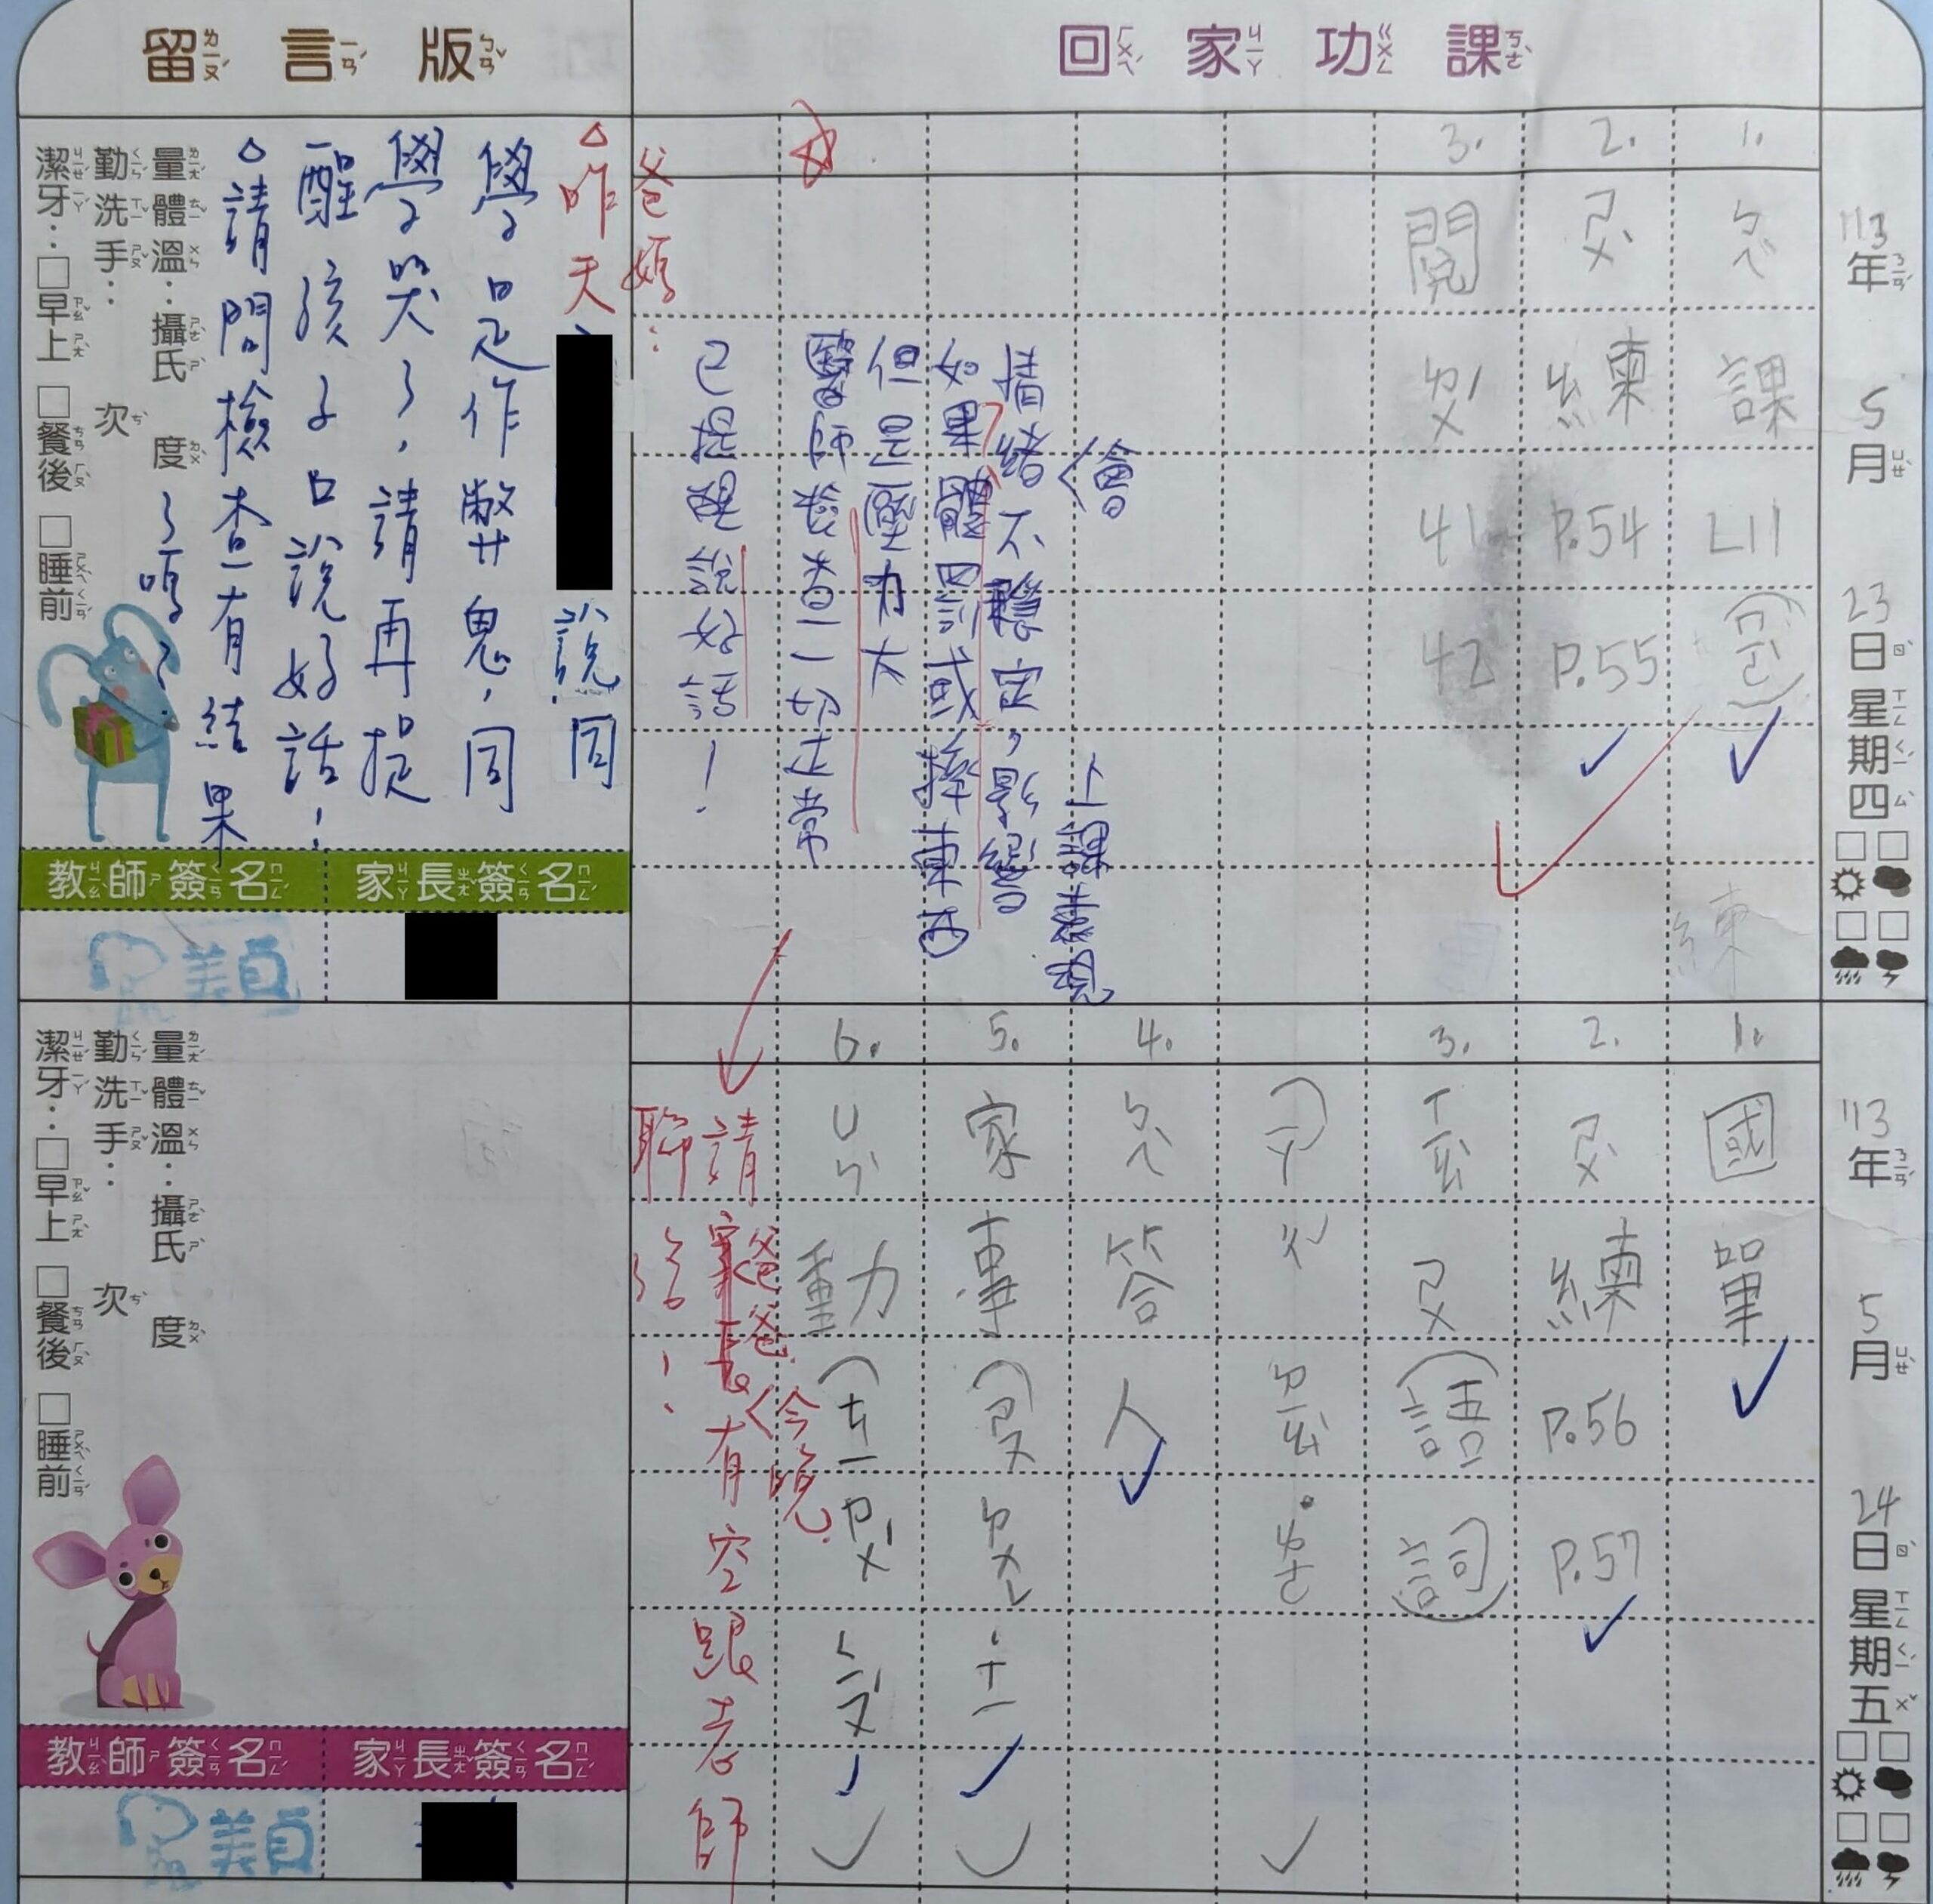 回家功課
留言版
113年5月23日星期四
1.ㄅㄟˋ課L11(ㄇˋㄛ)
2.ㄕㄨˋ練P.54 P.55
3.閱ㄉㄨˊ41 42
練
會
上課聽
情緒不穩定,影響
如果體罰或摔東西
但是壓力大
醫師檢查一切正常
已提醒說好話!
爸媽:
△昨天
說同
學是作弊鬼,同
學哭了,請再提
醒孩子口說好話!
△請問檢查有結果
了嗎?
量體溫:攝氏 度
勤洗手: 次
潔牙:□早上□餐後□睡前
教師簽名
家長簽名
美貞
113年5月24日星期五
1.國單
2.ㄕㄨˋ練P.56 P.57
3.ㄒㄧㄠˇㄕㄨˋ(語詞)
4.ㄅㄟˋ答人
5.家事
6.ㄩㄣˋ動
請爸爸
家長
今晚
有空跟老師
聯絡!
量體溫:攝氏 度
勤洗手: 次
潔牙:□早上□餐後□睡前
教師簽名
家長簽名
美貞